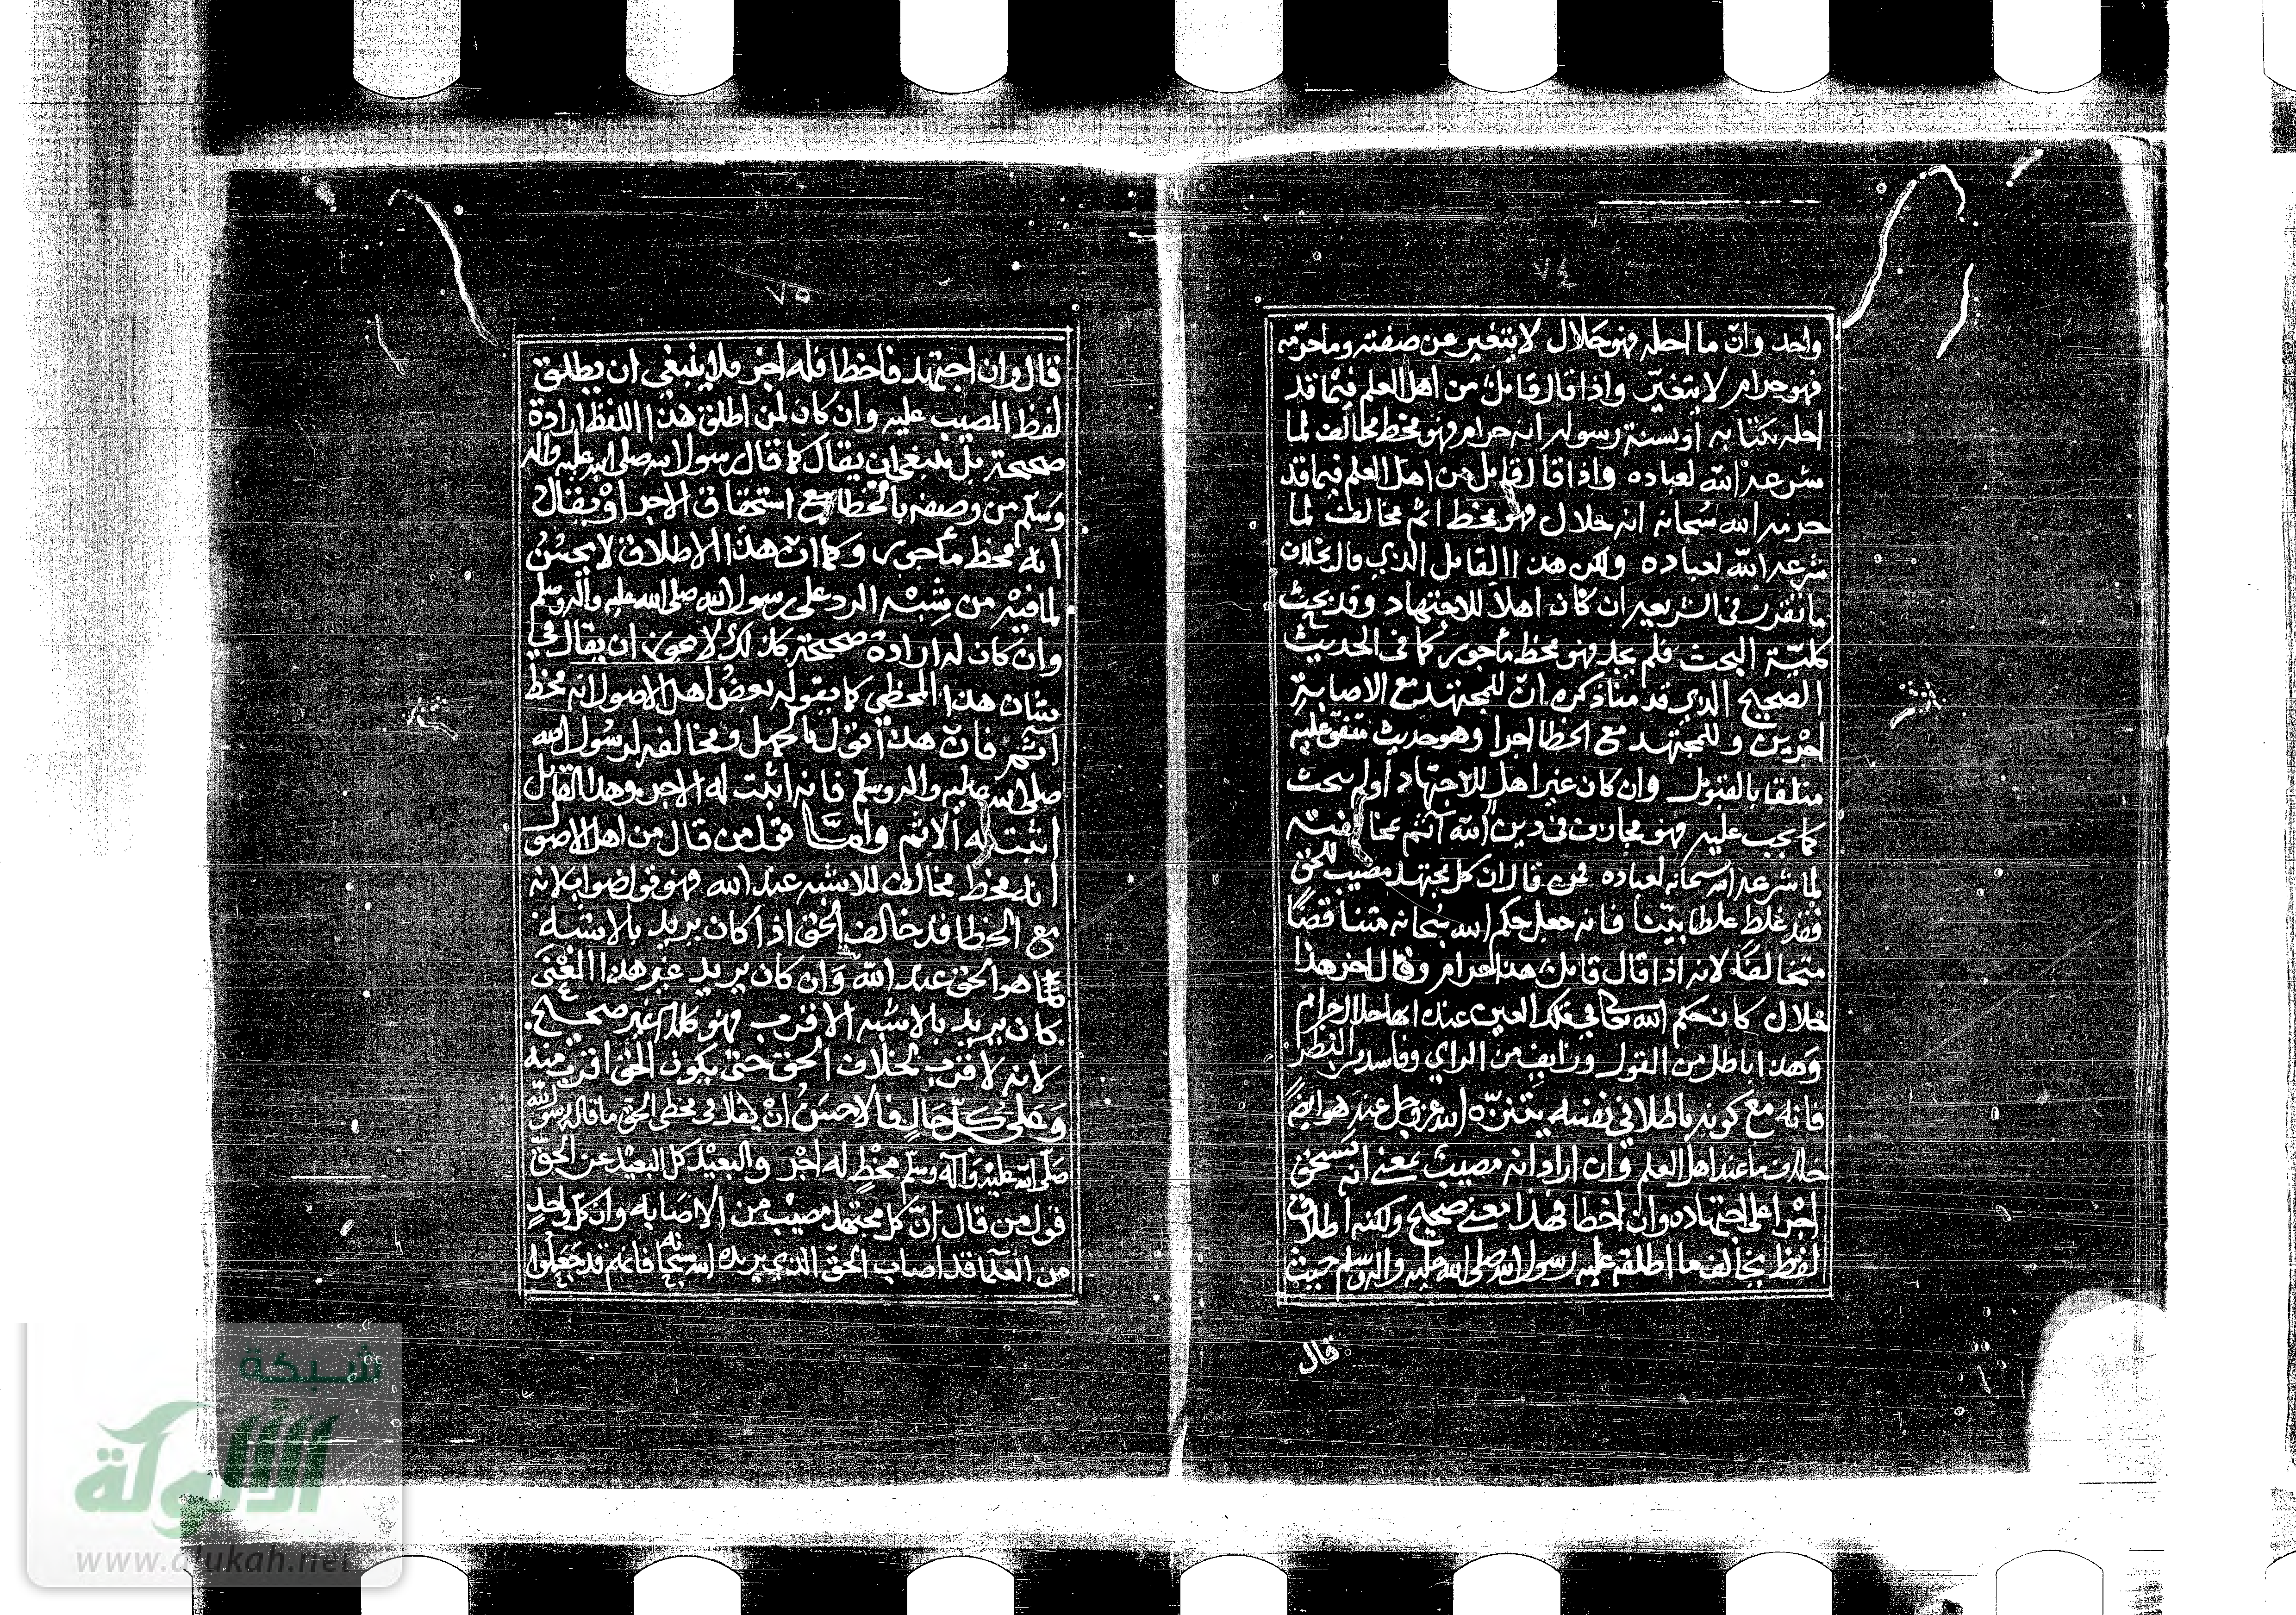 ٧٤
واحد وان ما احله فهو حلال لا يتغير عن صفته وما حرمه
فهو حرام لا يتغير واذا قال قائل من اهل العلم فيما قد
احله بكتابه او بسنة رسوله انه حرام فهو مخط مخالف لما
شرعه الله لعباده واذا قال قائل من اهل العلم فيما قد
حرمه الله سبحانه انه حلال فهو مخط اثم مخالف لما
شرعه الله لعباده ولكن هذا القائل الذي قال بخلاف
ما تقرر في الشريعة ان كان اهلا للاجتهاد وقد بحث
كلية البحث فلم يجد فهو مخط مأجور كما في الحديث
الصحيح الذي قدمنا ذكره ان للمجتهد مع الاصابة
اجرين وللمجتهد مع الخطا اجرا وهو حديث متفق عليه
متلقا بالقبول وان كان غير اهل للاجتهاد او لم يبحث
كما يجب عليه فهو مجازف في دين الله آثم بمخالفته
لما شرعه الله سبحانه لعباده فمن قال ان كل مجتهد مصيب للحق
فقد غلط غلطا بينا فانه جعل حكم الله سبحانه متناقضا
متخالفا لانه اذا قال قائل هذا حرام وقال اخر هذا
حلال كان حكم الله تعا في تلك العين عنده انها حلال حرام
وهذا باطل من القول وزايف من الراي وفاسد من النظر
فانه مع كونه باطلا في نفسه يتنزه الله عز وجل عنه هو ايضا
خلاف ما عند اهل العلم وان اراد انه مصيب بمعنى انه يستحق
اجرا على اجتهاده وان اخطا فهذا معنى صحيح ولكنه اطلاق
لفظ يخالف ما اطلقه عليه رسول الله صلى الله عليه واله وسلم حيث
قال
٧٥
قال وان اجتهد فاخطا فله اجر فلا ينبغي ان يطلق
لفظ المصيب عليه وان كان لمن اطلق هذا اللفظ ارادة
صحيحة بل ينبغي ان يقال كما قال رسول الله صلى الله عليه واله
وسلم من وصفه بالخطا مع استحقاق الاجر او يقال
انه مخط مأجور وكما ان هذا الاطلاق لا يحسن
لما فيه من شبه الرد على رسول الله صلى الله عليه واله وسلم
وان كان له ارادة صحيحة كذلك لا يجوز ان يقال في
شان هذا المخطي كما يقوله بعض اهل الاصول انه مخط
آثم فان هذا تقول بالجهل ومخالفه لرسول الله
صلى الله عليه واله وسلم فانه اثبت له الاجر وهذا القائل
اثبت له الاثم وامّا قول من قال من اهل الاصول
انه مخط مخالف للاشبه عند الله فهو قول صواب لانه
مع الخطا قد خالف الحق اذا كان يريد بالاشبه
ما هو الحق عند الله وان كان يريد غير هذا المعنى
كان يريد بالاشبه الاقرب فهو كلام غير صحيح
لانه لا قرب لخلاف الحق حتى يكون الحق اقرب منه
وعلى كل حال فالاحسن ان يقال في مخطي الحق ما قال رسول الله
صلى الله عليه وآله وسلم مخط له اجر والبعيد كل البعيد عن الحق
قول من قال ان كل مجتهد مصيب من الاصابه وان كل واحد
من العلما قد اصاب الحق الذي يريده الله سبحانه فانهم قد جعلوا
شبكة
الألوكة
www.alukah.net